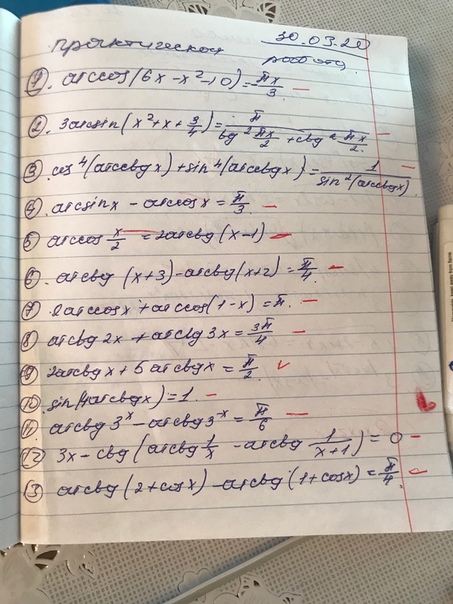 30.03.20
практическая работа
① arccos(6x-x²-10)=πx/3
② 3arcsin(x²+x+3/4)=π/(tg² πx/2 + ctg² πx/2)
③ cos⁴(arcctgx)+sin⁴(arcctgx)=1/sin²(arcctgx)
④ arcsinx - arccosx = π/3
⑤ arccos x/2 = 2arctg(x-1)
⑥ arctg (x+3)-arctg(x+2)=π/4
⑦ 2arccosx+arccos(1-x)=π.
⑧ arctg 2x + arctg 3x = 3π/4
⑨ 2arctgx + 5arcctgx = π/2
⑩ sin(4arctgx)=1.
⑪ arctg 3ˣ - arctg 3⁻ˣ = π/6
⑫ 3x - ctg(arctg 1/x - arctg 1/(x+1)) = 0
⑬ arctg (2+cosx) - arctg (1+cosx) = π/4